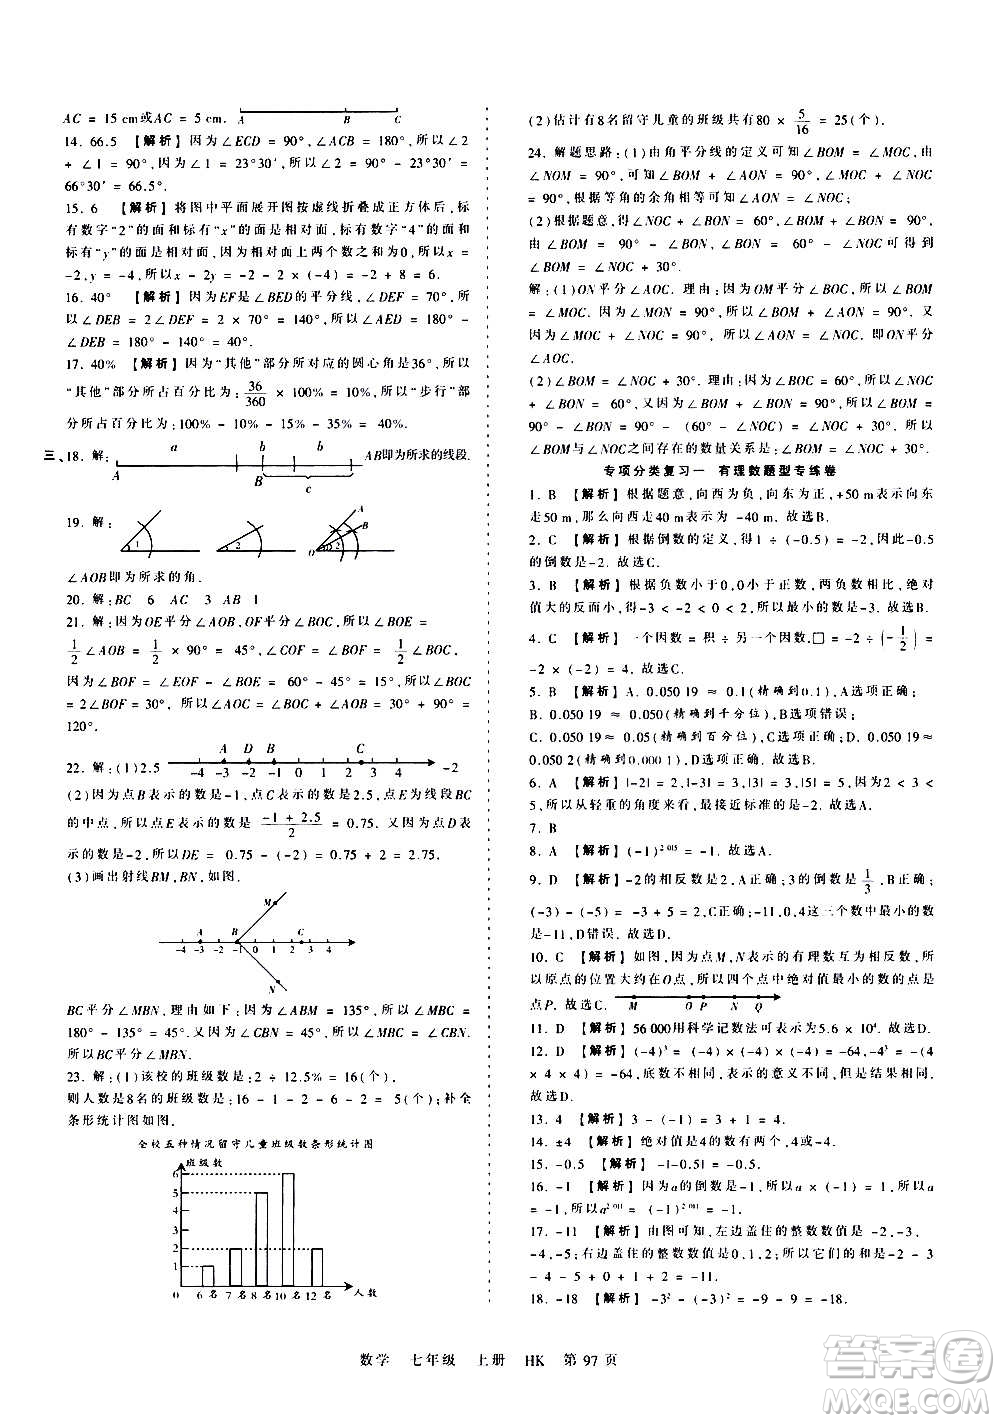 AC = 15 cm或AC = 5 cm.
A B C
14. 66.5 【解析】因为∠ECD = 90°,∠ACB = 180°,所以∠2
+ ∠1 = 90°.因为∠1 = 23°30′,所以∠2 = 90° - 23°30′ =
66°30′ = 66.5°.
15. 6 【解析】将图中平面展开图按虚线折叠成正方体后,标
有数字“2”的面和标有“x”的面是相对面,标有数字“4”的面和
标有“y”的面是相对面,因为相对面上两个数之和为0,所以x =
-2,y = -4,所以x - 2y = -2 - 2 × (-4) = -2 + 8 = 6.
16. 40° 【解析】因为EF是∠BED的平分线,∠DEF = 70°,所
以∠DEB = 2∠DEF = 2 × 70° = 140°.因为∠AEB +
∠DEB = 180°,所以∠AEB = 180° - 140° = 40°.
17. 40% 【解析】因为“其他”部分所对应的圆心角是36°,所以
“其他”部分所占百分比为:36/360 × 100% = 10%,所以“步行”部
分所占百分比为:100% - 10% - 15% - 35% = 40%.
三、18. 解: a b b AB即为所求的线段.
A B c
19. 解:
1 2 O 1 2 A B
∠AOB即为所求的角.
20. 解:BC 6 AC 3 AB 1
21. 解:因为OE平分∠AOB,OF平分∠BOC,所以∠BOE =
1/2∠AOB = 1/2 × 90° = 45°,∠COF = ∠BOF = 1/2∠BOC,
因为∠BOF = ∠EOF - ∠BOE = 60° - 45° = 15°,所以∠BOC
= 2∠BOF = 30°.所以∠AOC = ∠BOC + ∠AOB = 30° + 90° =
120°.
22. 解:(1)2.5 -2
A D B C
-4 -3 -2 -1 0 1 2 3 4
(2)因为点B表示的数是-1,点C表示的数是2.5,点E为线段BC
的中点,所以点E表示的数是 (-1 + 2.5)/2 = 0.75.又因为点D表
示的数是-2,所以DE = 0.75 - (-2) = 0.75 + 2 = 2.75.
(3)画出射线BM,BN,如图.
M
A B C
-4 -3 -2 -1 0 1 2 3 4
N
BC平分∠MBN,理由如下:因为∠ABM = 135°,所以∠MBC =
180° - 135° = 45°.又因为∠CBN = 45°,所以∠MBC = ∠CBN.
所以BC平分∠MBN.
23. 解:(1)该校的班级数是:2 ÷ 12.5% = 16(个).
则人数是8名的班级数是:16 - 1 - 2 - 6 - 2 = 5(个),补全
条形统计图如图.
全校五种情况留守儿童班级数条形统计图
班级数
6
5
4
3
2
1
0 6名 7名 8名 10名 12名 人数
(2)估计有8名留守儿童的班级共有80 × 5/16 = 25(个).
24. 解题思路:(1)由角平分线的定义可知∠BOM = ∠MOC,由
∠NOM = 90°,可知∠BOM + ∠AON = 90°,∠MOC + ∠NOC
= 90°,根据等角的余角相等可知∠AON = ∠NOC;
(2)根据题意,得∠BOM + ∠NOC + 90° = 120°,∠BOM +
∠NOC = 30°,再由∠BOM = 90° - ∠BON,
由∠BOM = 60° - ∠NOC,可得90° - ∠BON + ∠NOC =
解:(1)ON平分∠AOC.理由:因为OM平分∠BOC,所以∠BOM
= ∠MOC,因为∠MON = 90°,所以∠BOM + ∠AON = 90°.又因
为∠MOC + ∠NOC = 90°,所以∠AON = ∠NOC.即ON平分
∠AOC.
(2)∠BON = ∠NOC + 30°.理由:因为∠BOM + ∠NOC = 30°,
∠BOM = 90° - ∠BON,所以∠NOC + 90° - ∠BON = 60°.所
以∠BON与∠NOC之间存在的数量关系是:∠BON = ∠NOC +
专项分类复习一 有理数题型专练卷
1. B 【解析】根据题意,向西为负,向东为正,+50 m表示向东
走50 m,那么向西走40 m表示为 -40 m.故选B.
2. C 【解析】根据倒数的定义,得1 ÷ (-0.5) = -2,所以-0.5
的倒数是-2.故选C.
3. B 【解析】根据负数小于0,0小于正数,两负数相比,绝对
值大的反而小,得-3 < -2 < 0 < 1,所以最小的是-3.故选B.
4. C 【解析】一个因数 = 积 ÷ 另一个因数,□ = -2 ÷ (-1/2) =
-2 × (-2) = 4.故选C.
5. B 【解析】A. 0.050 19 ≈ 0.1(精确到0.1),A选项正确;
B. 0.050 19 ≈ 0.05(精确到千分位),B选项错误;
C. 0.050 19 ≈ 0.05(精确到百分位),C选项正确;D. 0.050 19 ≈
0.050 2(精确到0.000 1),D选项正确.故选B.
6. A 【解析】|-2| = 2,|-3| = 3,|3| = 3,|5| = 5,因为2 < 3 <
5,所以从轻重的角度来看,最接近标准的是-2.故选A.
7. B
8. A 【解析】(-1)^2 015 = -1.故选A.
9. D 【解析】-2的相反数是2,A正确;3的倒数是1/3,B正确;
(-3) - (-5) = -3 + 5 = 2,C正确;-11,0,4这三个数中最小的数
是-11,D错误.故选D.
10. C 【解析】如图,因为点M,N表示的有理数互为相反数,所
以原点的位置大约在O点,所以四个点中绝对值最小的数的点是
点P,故选C.
M O P N Q
11. D 【解析】56 000用科学记数法可表示为5.6 × 10⁴.故选D.
12. D 【解析】(-4)³ = (-4) × (-4) × (-4) = -64,-4³ = -(4
× 4 × 4) = -64,底数不相同,表示的意义不同,但结果相同.
故选D.
13. 4 【解析】3 - (-1) = 3 + 1 = 4.
14. ±4 【解析】绝对值是4的数有两个,4或-4.
15. -0.5 【解析】
16. -1 【解析】因为a的倒数是它本身,所以a = -1,所以a
= -1,所以
17. -11 【解析】由图可知,左边盖住的整数数值是 -2,-3,
-4,-5;右边盖住的整数数值是0,1,2,所以它们的和是-2 - 3
- 4 - 5 + 0 + 1 + 2 = -11.
18. -18 【解析】-3² - (-3)² = -9 - 9 = -18.
数学 七年级 上册 HK 第97页
答案圈
MXQE.COM